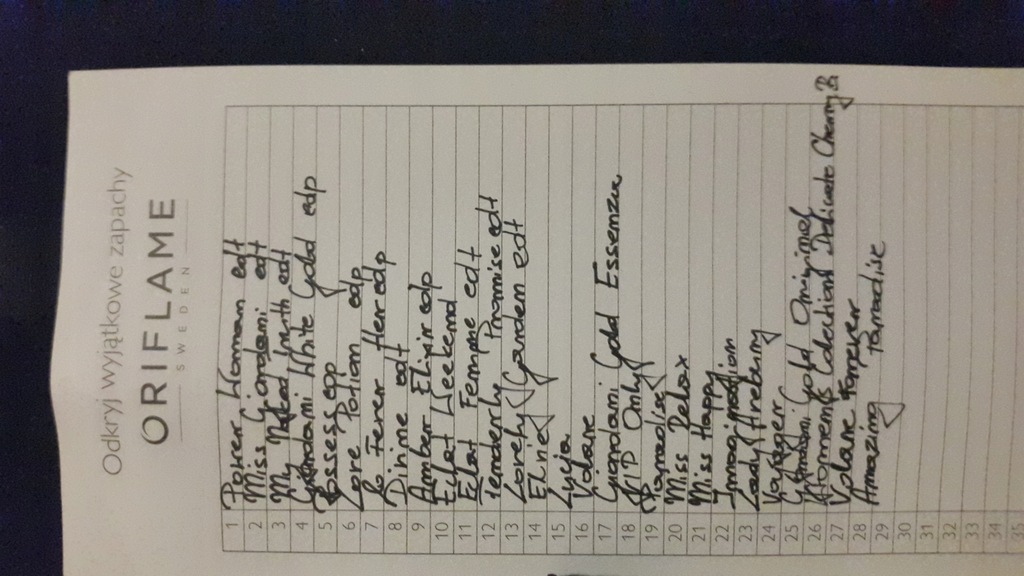 Odkryj wyjątkowe zapachy
ORIFLAME
SWEDEN
1 Power Woman edt
2 Miss Giordani edt
3 My Naked truth edt
4 Giordani White Gold edp
5 Possess epp
6 Love Potion edp
7 So Fever Her edp
8 Divine edt
9 Amber Elixir edp
10 Eclat Weekend
11 Eclat Femme edt
12 Tenderly Promise edt
13 Lovely Garden edt
14
15 Lycia
16 Volare
17 Giordani Gold Essenza
18 VIP Only
19 Paradise
20 Miss Relax
21 Miss Happy
22 Imagination
23 Lady Avebury
24 Voyager
25 Giordani Gold Original
26 Women's Colection Delicate Cherry B
27 Volare Forever
28 Amazing Paradise
29
30
31
32
33
34
35